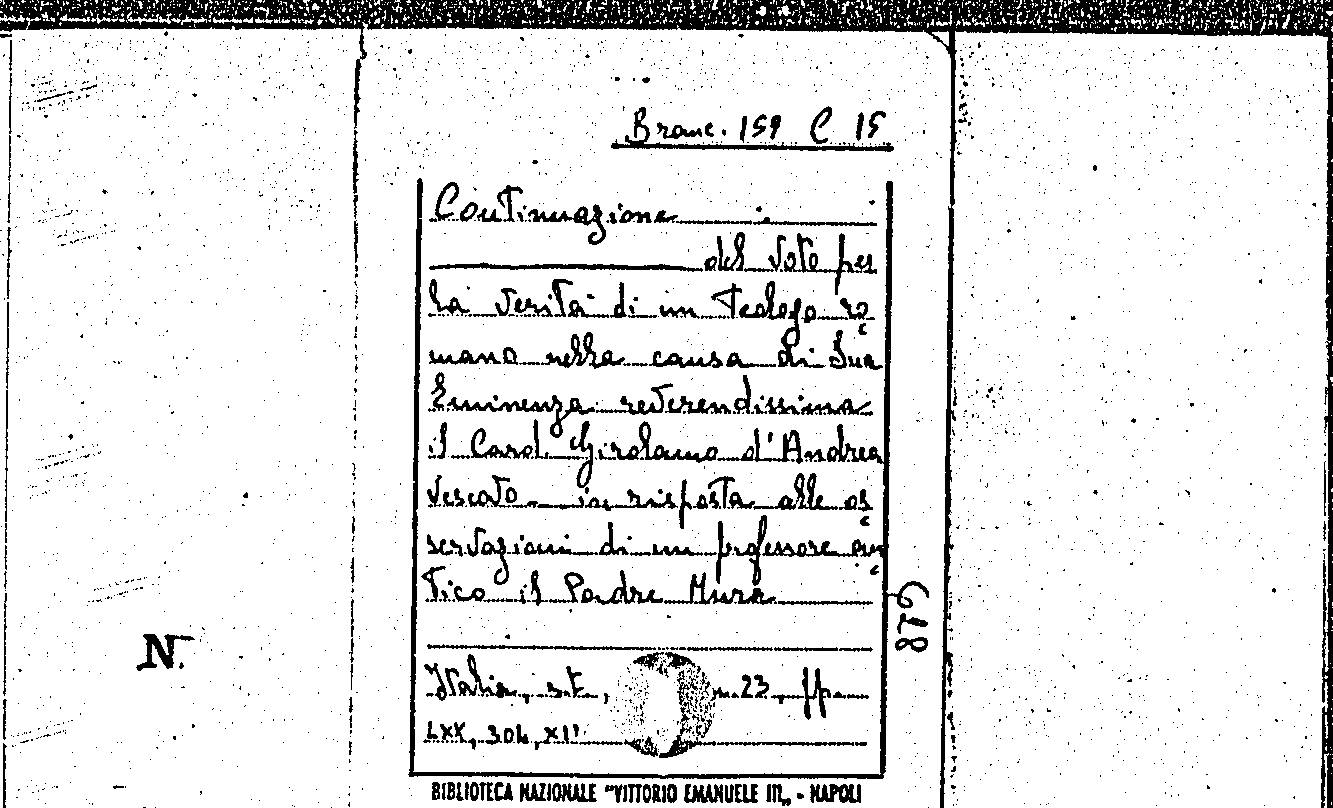 Branc. 159 C 15
Continuazione
del voto per
la verità di un Teologo ro
mano nella causa di Sua
Eminenza reverendissima
il Card. Girolamo d'Andrea
vescovo in risposta alle os
servazioni di un professore
tico il Padre Mura
628
N.
Italia, s.t., m.23, pp.
LXX, 304, XII
BIBLIOTECA NAZIONALE "VITTORIO EMANUELE III„ - NAPOLI